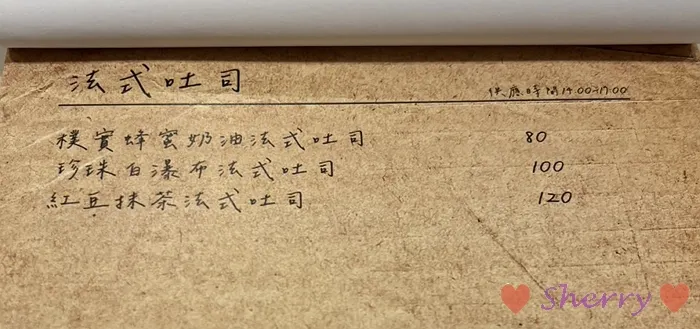 法式吐司
供應時間14:00-17:00
樸實蜂蜜奶油法式吐司 80
珍珠白瀑布法式吐司 100
紅豆抹茶法式吐司 120
Sherry